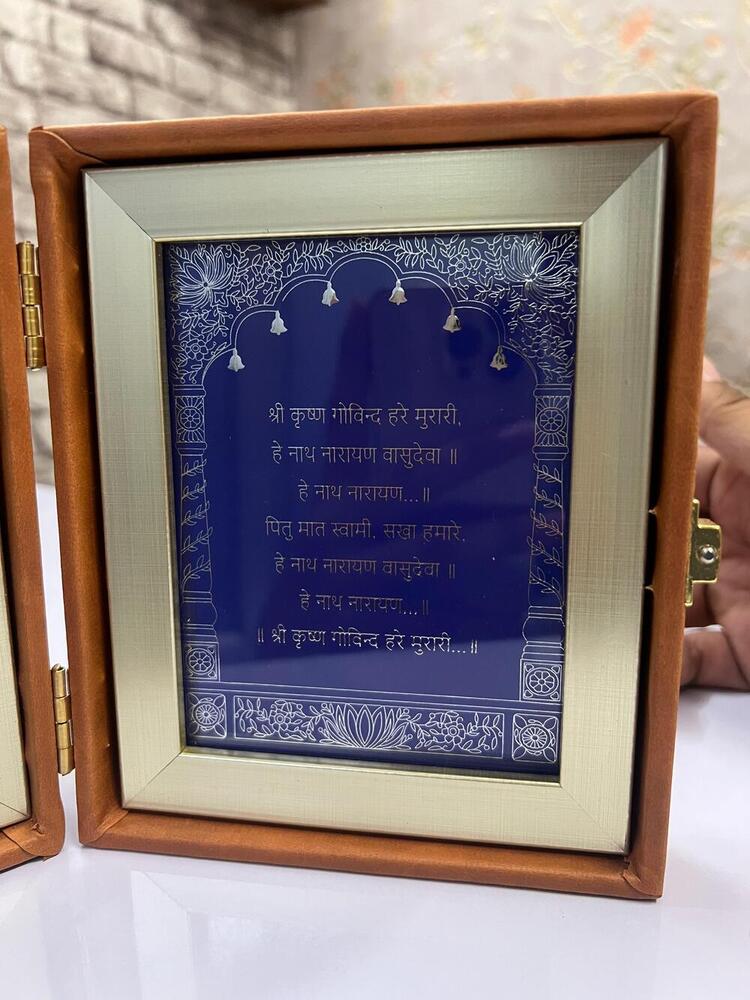 श्री कृष्ण गोविन्द हरे मुरारी,
हे नाथ नारायण वासुदेवा ॥
हे नाथ नारायण...॥
पितु मात स्वामी, सखा हमारे,
हे नाथ नारायण वासुदेवा ॥
हे नाथ नारायण...॥
॥ श्री कृष्ण गोविन्द हरे मुरारी...॥